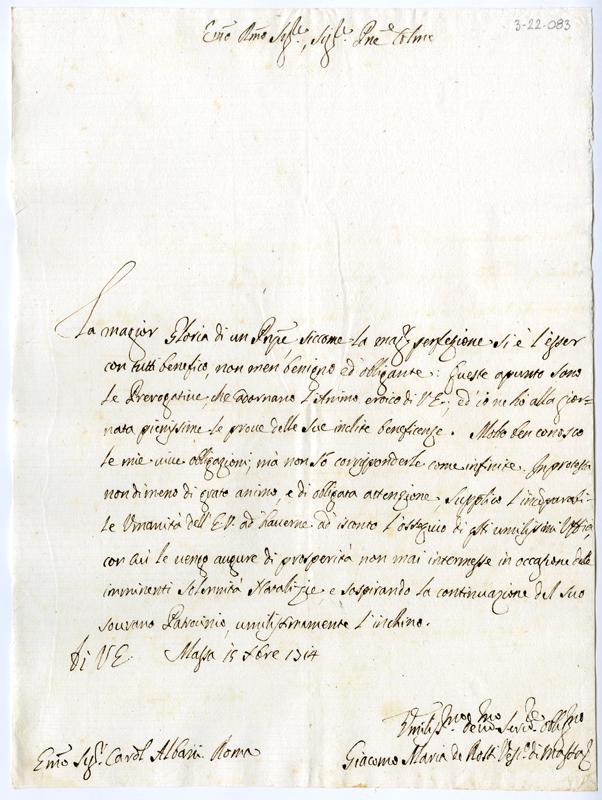 3-22-083
Em̃o Rm̃o Sig.re, Sig.re Pne Colmo
La magior Gloria di un Prñpe, siccome la mag.r perfezione si è l'esser
con tutti benefico, non men benigno ed obligante: Queste apunto sono
le Prerogative, che adornano l'Animo eroico di V.E.; ed io ne hò alla gior=
nata pienissime le prove delle sue inclite beneficenze. Molto ben conosco
le mie vive obligazioni, mà non sò corrisponderle come infinite. In protesta
nondimeno di grato animo, e di obligata attenzione, supplico l'incõparabi-
le Umanità dell'E.V. ad haverne ad isconto l'ossequio di q̃sti umilissimi Uffici,
con cui le vengo augure di prosperità non mai intermesse in occazione delle
imminenti solennità Natalizie, e sospirando la continuazione del suo
sovrano Patrocinio, umilissimamente l'inchino.
Di V.E. Massa 15 Xbre 1714
Umiliss.mo devo.mo Serv.re obblig.mo
Em̃o Sig.r Card.l Albani. Roma
Giacomo Maria de Rossi Vesc.o di Massa